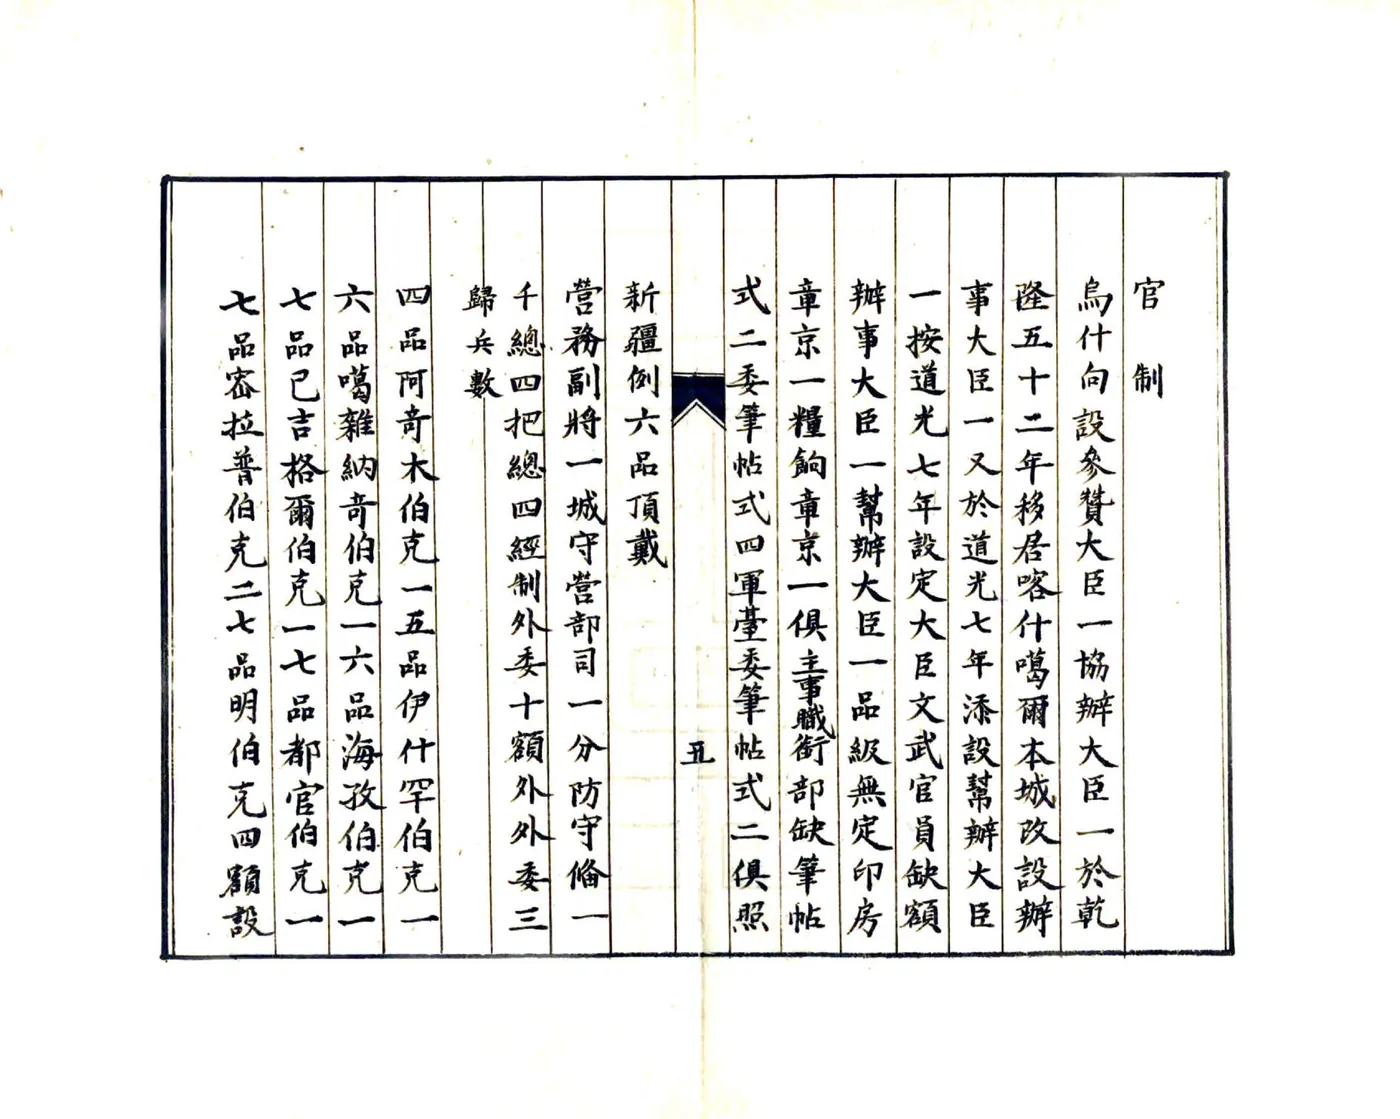 官制
烏什向設參贊大臣一協辦大臣一於乾
隆五十二年移居喀什噶爾本城改設辦
事大臣一又於道光七年添設幫辦大臣
一按道光七年設定大臣文武官員缺額
辦事大臣一幫辦大臣一品級無定印房
章京一糧餉章京一俱主事職銜部缺筆帖
式二委筆帖式四軍臺委筆帖式二俱照
五
新疆例六品頂戴
營務副將一城守營部司一分防守俻一
千總四把總四經制外委十額外外委三
歸兵數
四品阿奇木伯克一五品伊什罕伯克一
六品噶雜納奇伯克一六品海孜伯克一
七品巴吉格爾伯克一七品都官伯克一
七品密拉普伯克二七品明伯克四額設